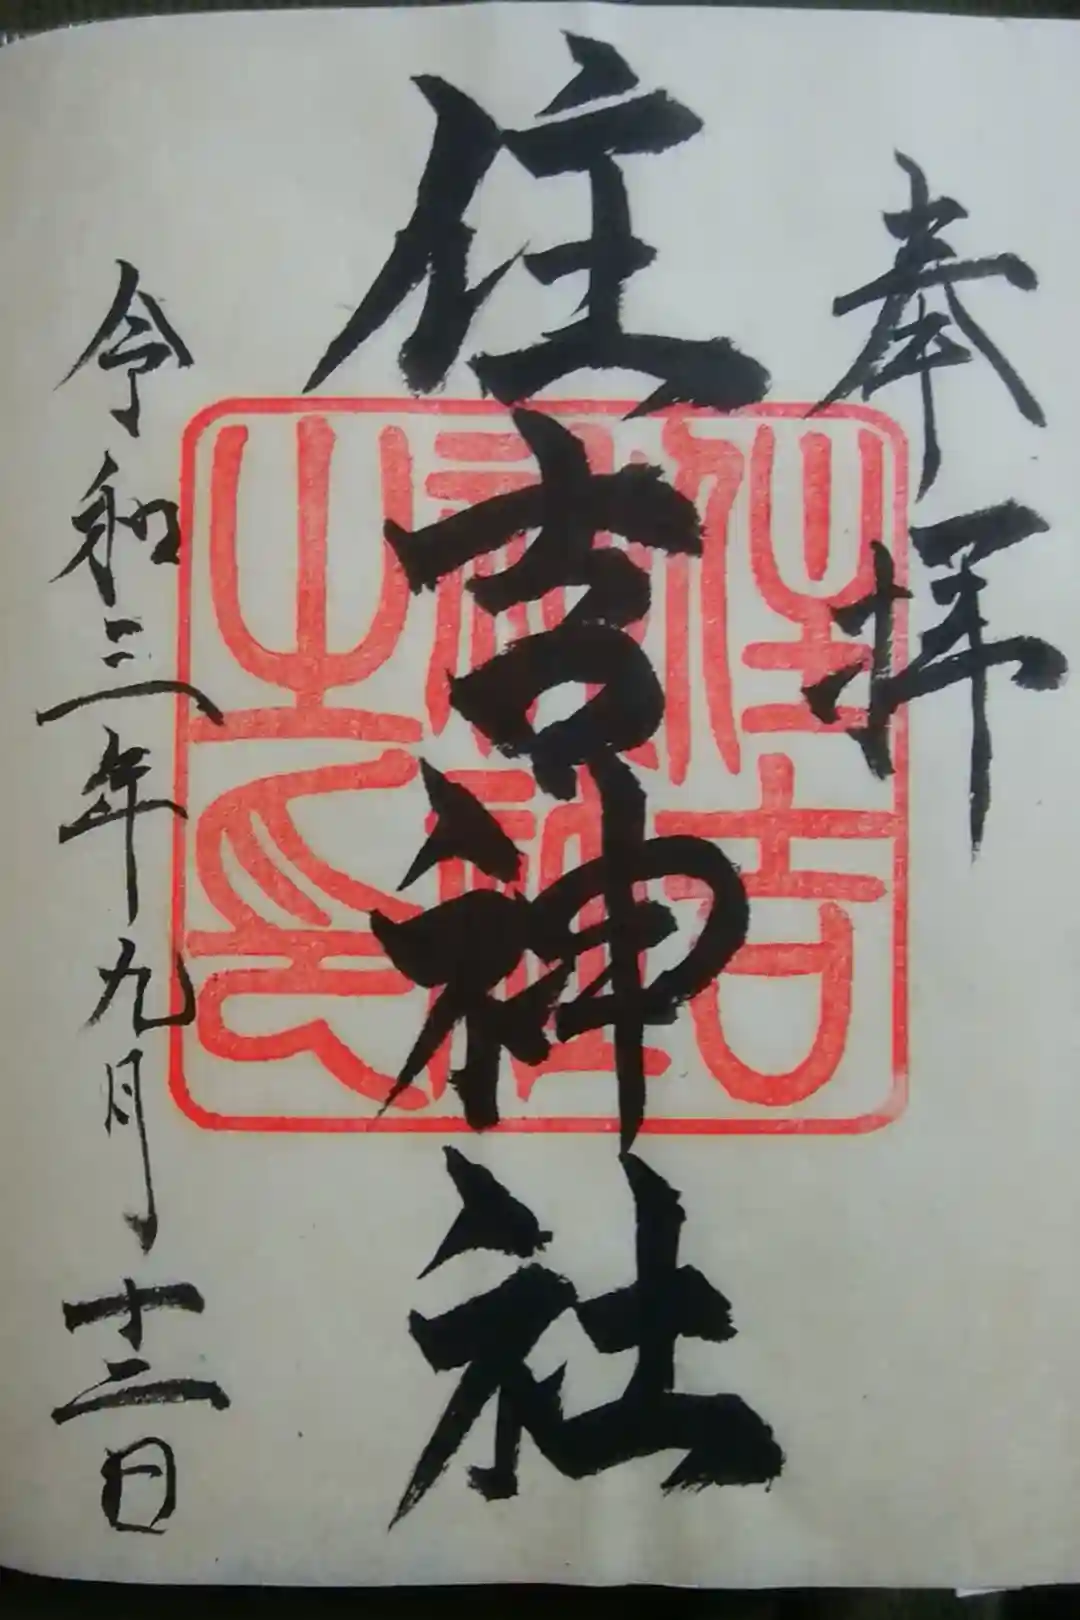 奉拝
住吉神社
住吉神社之印
令和三年九月十二日